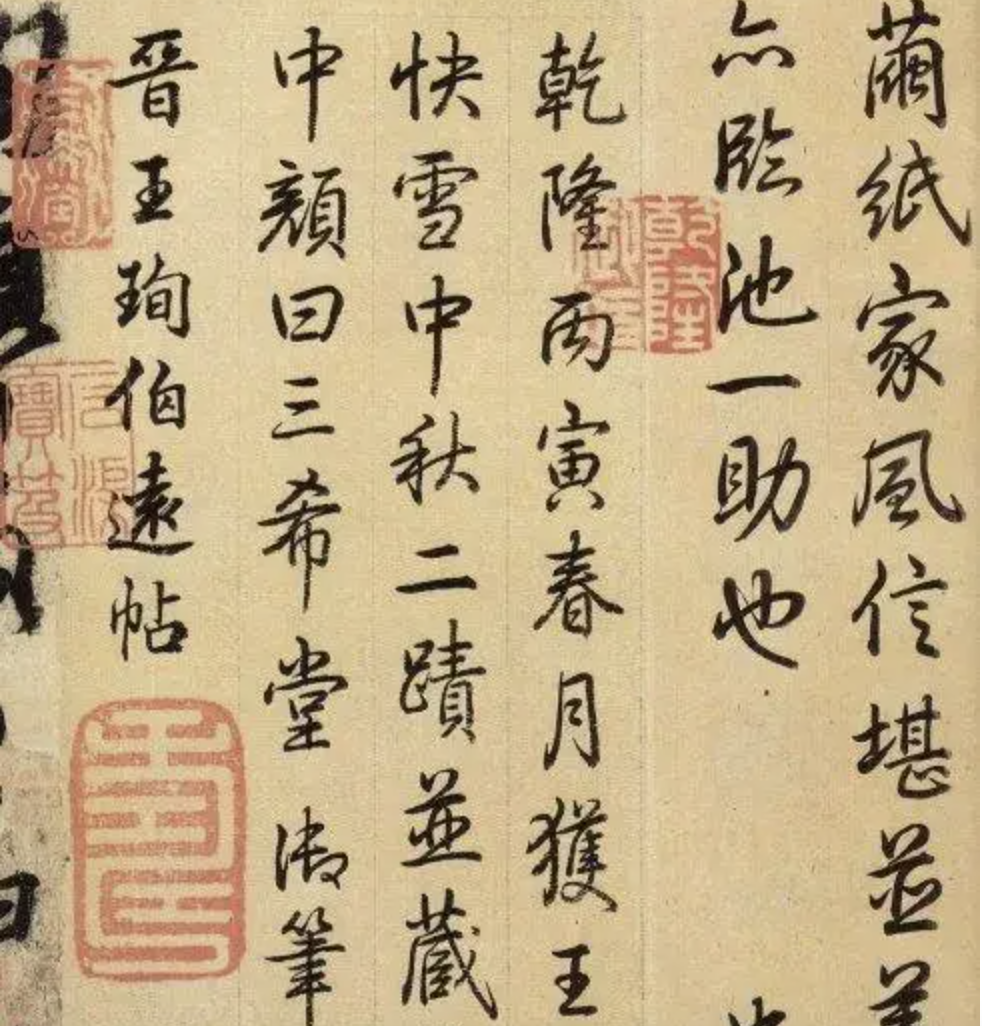 繭紙家風信堪並
亦臨池一助也
乾隆丙寅春月獲王
快雪中秋二蹟並藏
中顏曰三希堂 御筆
晉王珣伯遠帖
乾隆